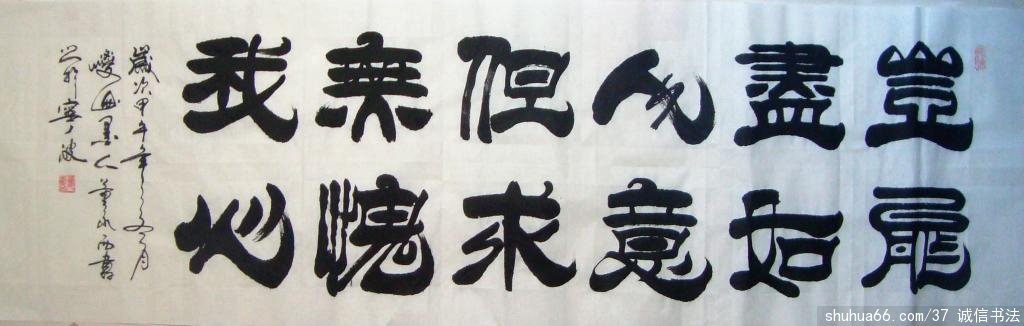 豈能
盡如
人意
但求
無愧
我心
歲次甲午年之冬月
墨人董書
寧波
shuhua66.com/37 诚信书法